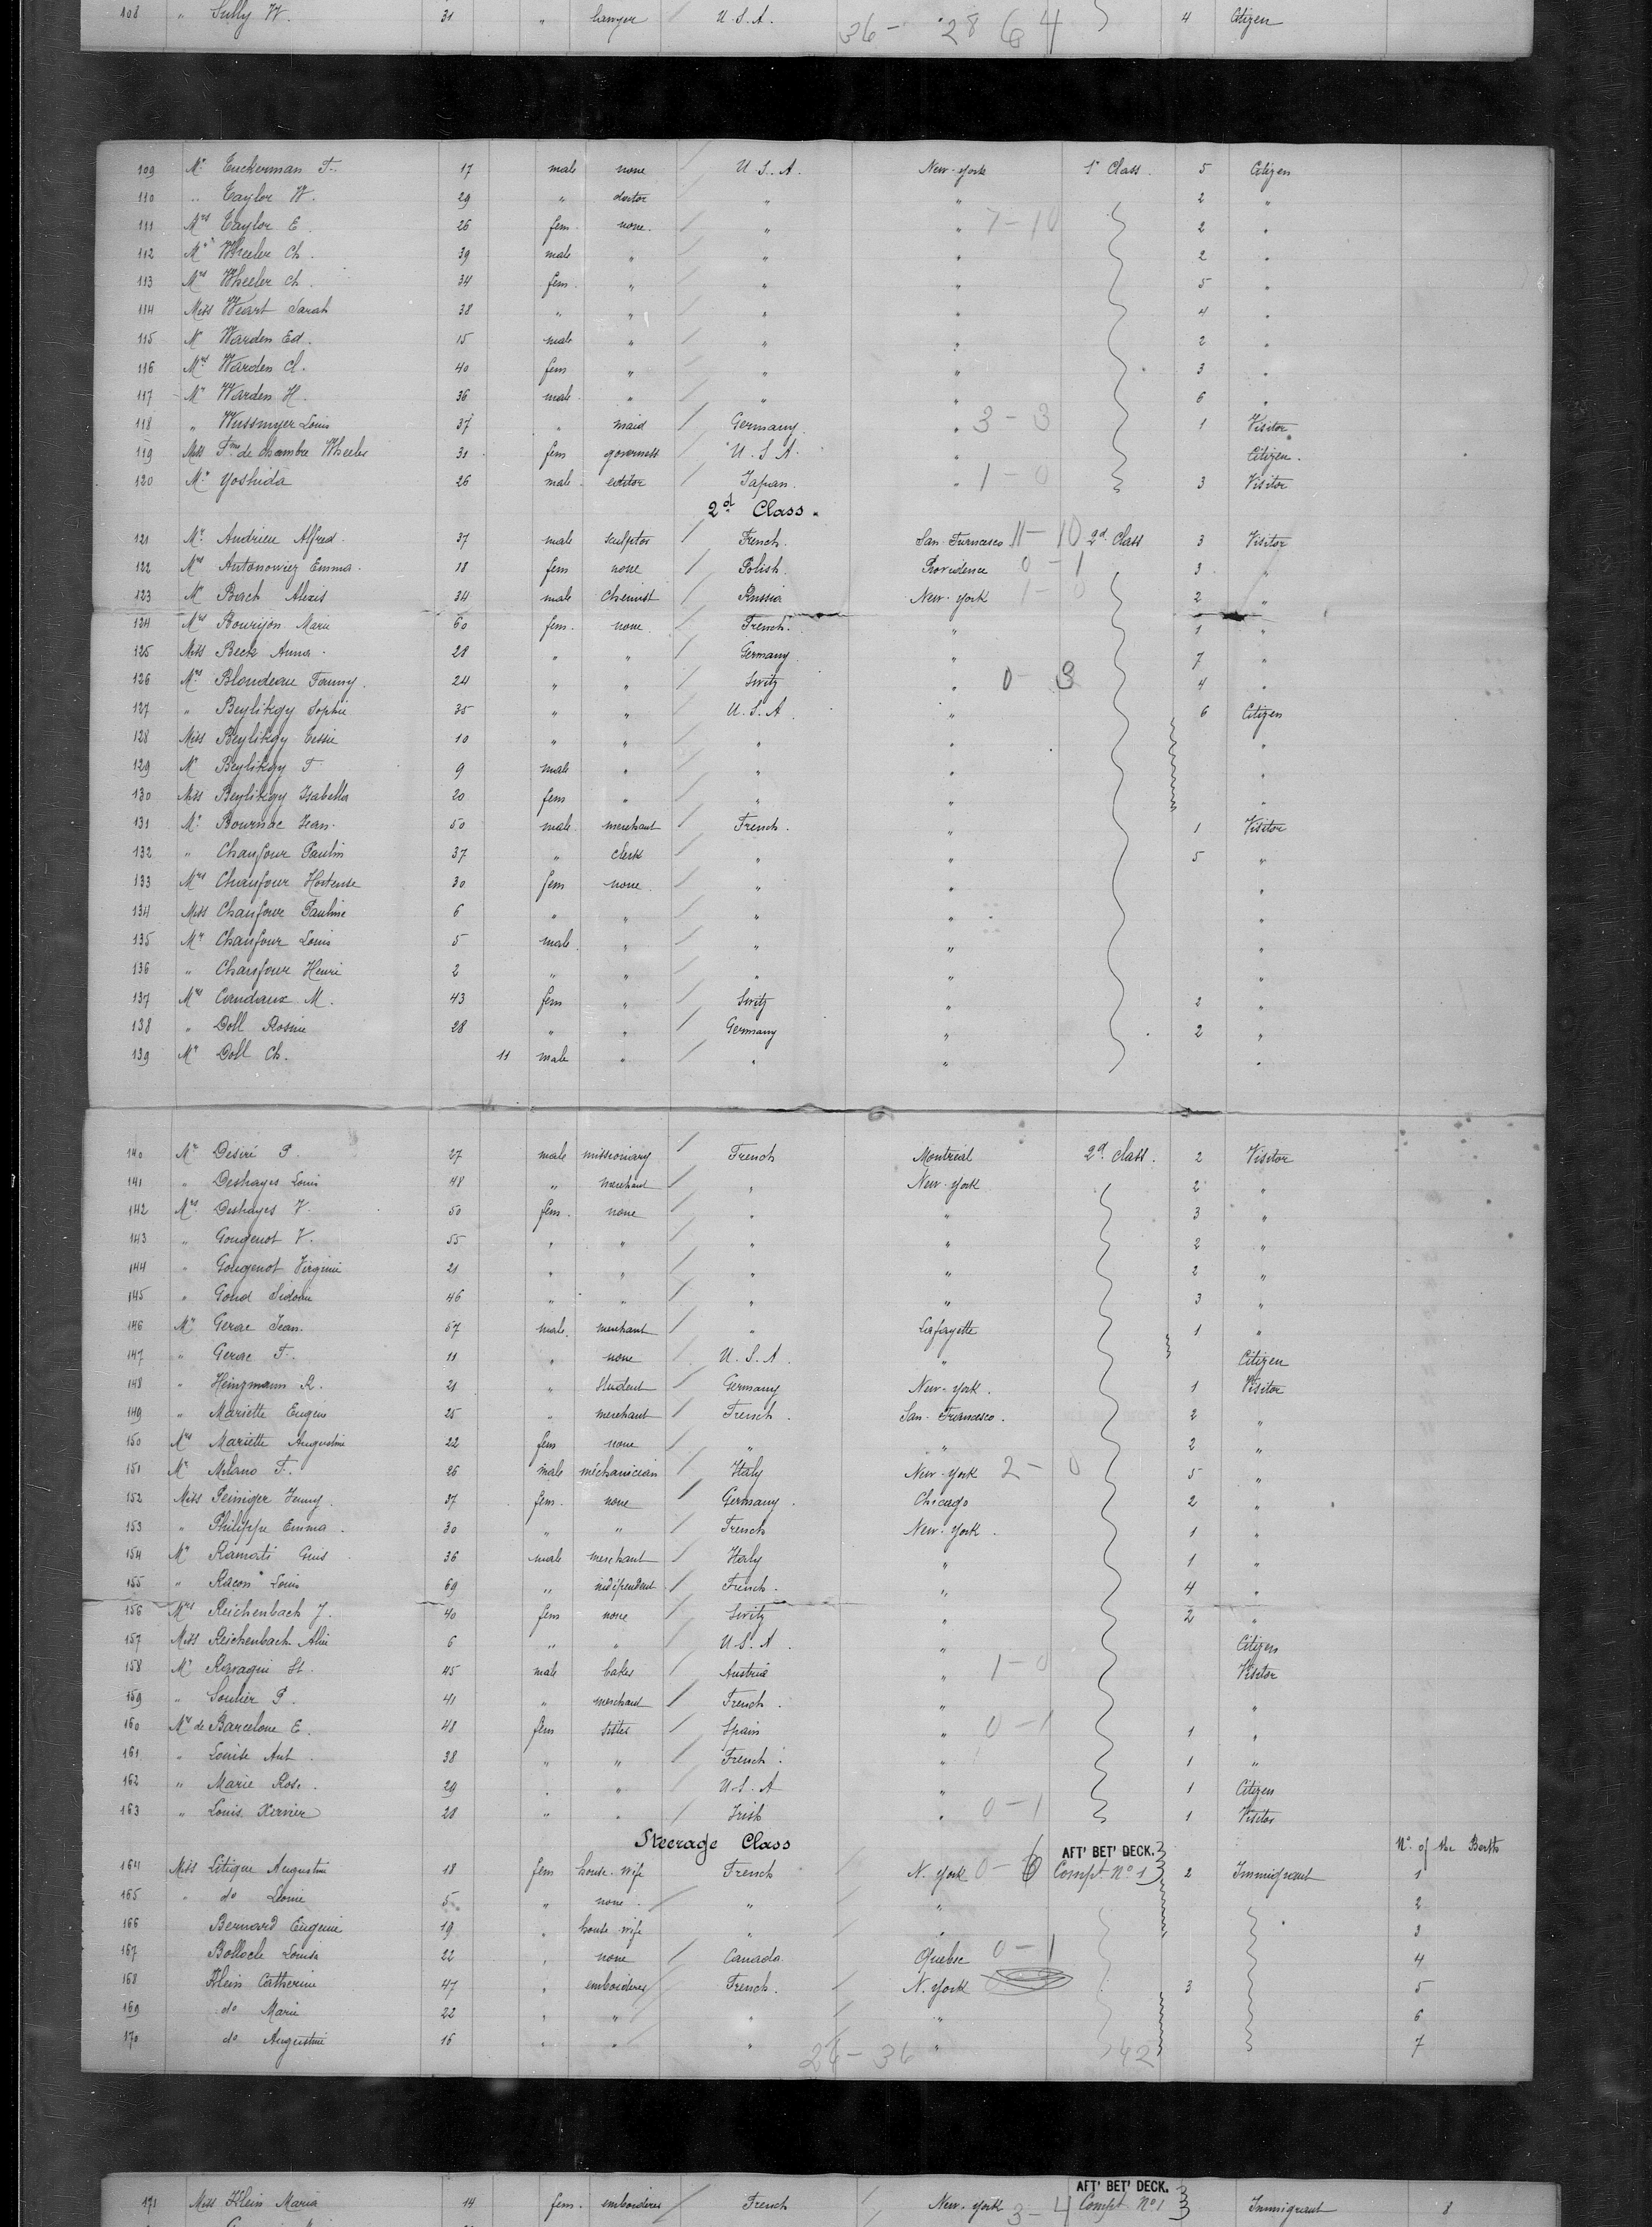 108 " Sully W. 31 " lawyer U.S.A. 4 Citizen
36 - 28 64
109 Mr Tuckerman F. 17 male none U.S.A. New-York 1st Class. 5 Citizen
110 " Taylor W. 29 " doctor " " 2 "
111 Mrs Taylor E. 26 fem. none. " " 7-10 2 "
112 Mr Wheeler Ch. 39 male " " " 2 "
113 Mrs Wheeler Ch. 34 fem. " " " 5 "
114 Miss Weart Sarah 38 " " " " 4 "
115 Mr Warden Ed. 15 male " " " 2 "
116 Mrs Warden Cl. 40 fem " " " 3 "
117 Mr Warden H. 36 male " " " 6 "
118 " Wussmyer Louis 37 " maid Germany. " 3-3 1 Visitor
119 Miss Fme de chambre Wheeler 31 fem governess U.S.A. " Citizen.
120 Mr Yoshida 26 male editor Japan. " 1-0 3 Visitor
2d Class.
121 Mr. Andrieu Alfred. 37 male sculptor French. San-Francesco 11-10 2d Class 3 Visitor
122 Mrs Antonowiez Emma. 18 fem none Polish. Providence 0-1 3 "
123 Mr Bach Alexis 34 male Chemist Russia New-York 1-0 2 "
124 Mrs Bourijon Marie 60 fem. none French. " 1 "
125 Miss Beck Anna. 28 " " Germany " 7 "
126 Mrs Blondeau Fanny. 24 " " Switz " 0-3 4 "
127 " Beylikgy Sophie 35 " " U.S.A. " 6 Citizen
128 Miss Beylikgy Tessie 10 " " " " "
129 Mr Beylikgy F 9 male " " " "
130 Miss Beylikgy Isabella 20 fem " " " "
131 Mr Bournac Jean. 50 male merchant French. " 1 Visitor
132 " Chaufour Paulin 37 " clerk " " 5 "
133 Mrs Chaufour Hortense 30 fem none. " " "
134 Miss Chaufour Pauline 6 " " " " "
135 Mr Chaufour Louis 5 male " " " "
136 " Chaufour Henri 2 " " " " "
137 Mrs Candaux M. 43 fem " Switz " 2 "
138 " Doll Rosine 28 " " Germany " 2 "
139 Mr Doll Ch. 11 male " " " "
140 Mr Désiré P. 27 male missionary French Montreal 2d Class. 2 Visitor
141 " Deshayes Louis 48 " merchant " New-York 2 "
142 Mrs Deshayes V. 50 fem. none " " 3 "
143 " Gougenot V. 55 " " " " 2 "
144 " Gougenot Virginie 21 " " " " 2 "
145 " Goud Sidonie 46 " " " " 3 "
146 Mr Gerac Jean. 57 male. merchant " Lafayette 1 "
147 " Gerac F. 11 " none U.S.A. " Citizen
148 " Heinzmann R. 21 " Student Germany New-York. 1 Visitor
149 " Mariette Eugène 25 " merchant French. San-Francesco. 2 "
150 Mrs Mariette Augustine 22 fem none " " 2 "
151 Mr Milano F. 26 male méchanician Italy New-York 2-0 5 "
152 Miss Peiniger Jenny. 37 fem. none Germany. Chicago 2 "
153 " Philippe Emma. 30 " " French New-York. 1 "
154 Mr Ramati Guis 36 male merchant Italy " 1 "
155 " Racon Louis 69 " indépendent French. " 4 "
156 Mrs Reichenbach J. 40 fem none Switz " 2 "
157 Miss Reichenbach Alice 6 " " U.S.A. " Citizen
158 Mr Ravagni St. 45 male baker Austria " 1-0 Visitor
159 " Soulier P. 41 " merchant French. " "
160 de Barcelone E. 48 fem sister Spain " 0-1 1 "
161 " Louise Ant. 38 " " French. " 1 "
162 " Marie Rose. 29 " " U.S.A " 1 Citizen
163 " Louis Xervier 28 " " Irish " 0-1 1 Visitor
Steerage Class No. of the Berth
AFT' BET' DECK.
164 Miss Litique Augustine 18 fem house-wife French N.York 0-6 Compt No 1 2 Immigrant 1
165 " do Léonie 5 " none. " " 2
166 Bernard Eugenie 19 " house wife " " 3
167 Louisa 22 " none Canada Quebec 0-1 4
168 Klein Catherine 47 " emboideres French. N.York 3 5
169 do Marie 22 " " " " 6
170 do Augustine 16 " " " " 7
26-36 42
AFT' BET' DECK.
171 Miss Klein Maria 14 fem. emboideres French New-York 3-4 Compt No 1 Immigrant 8